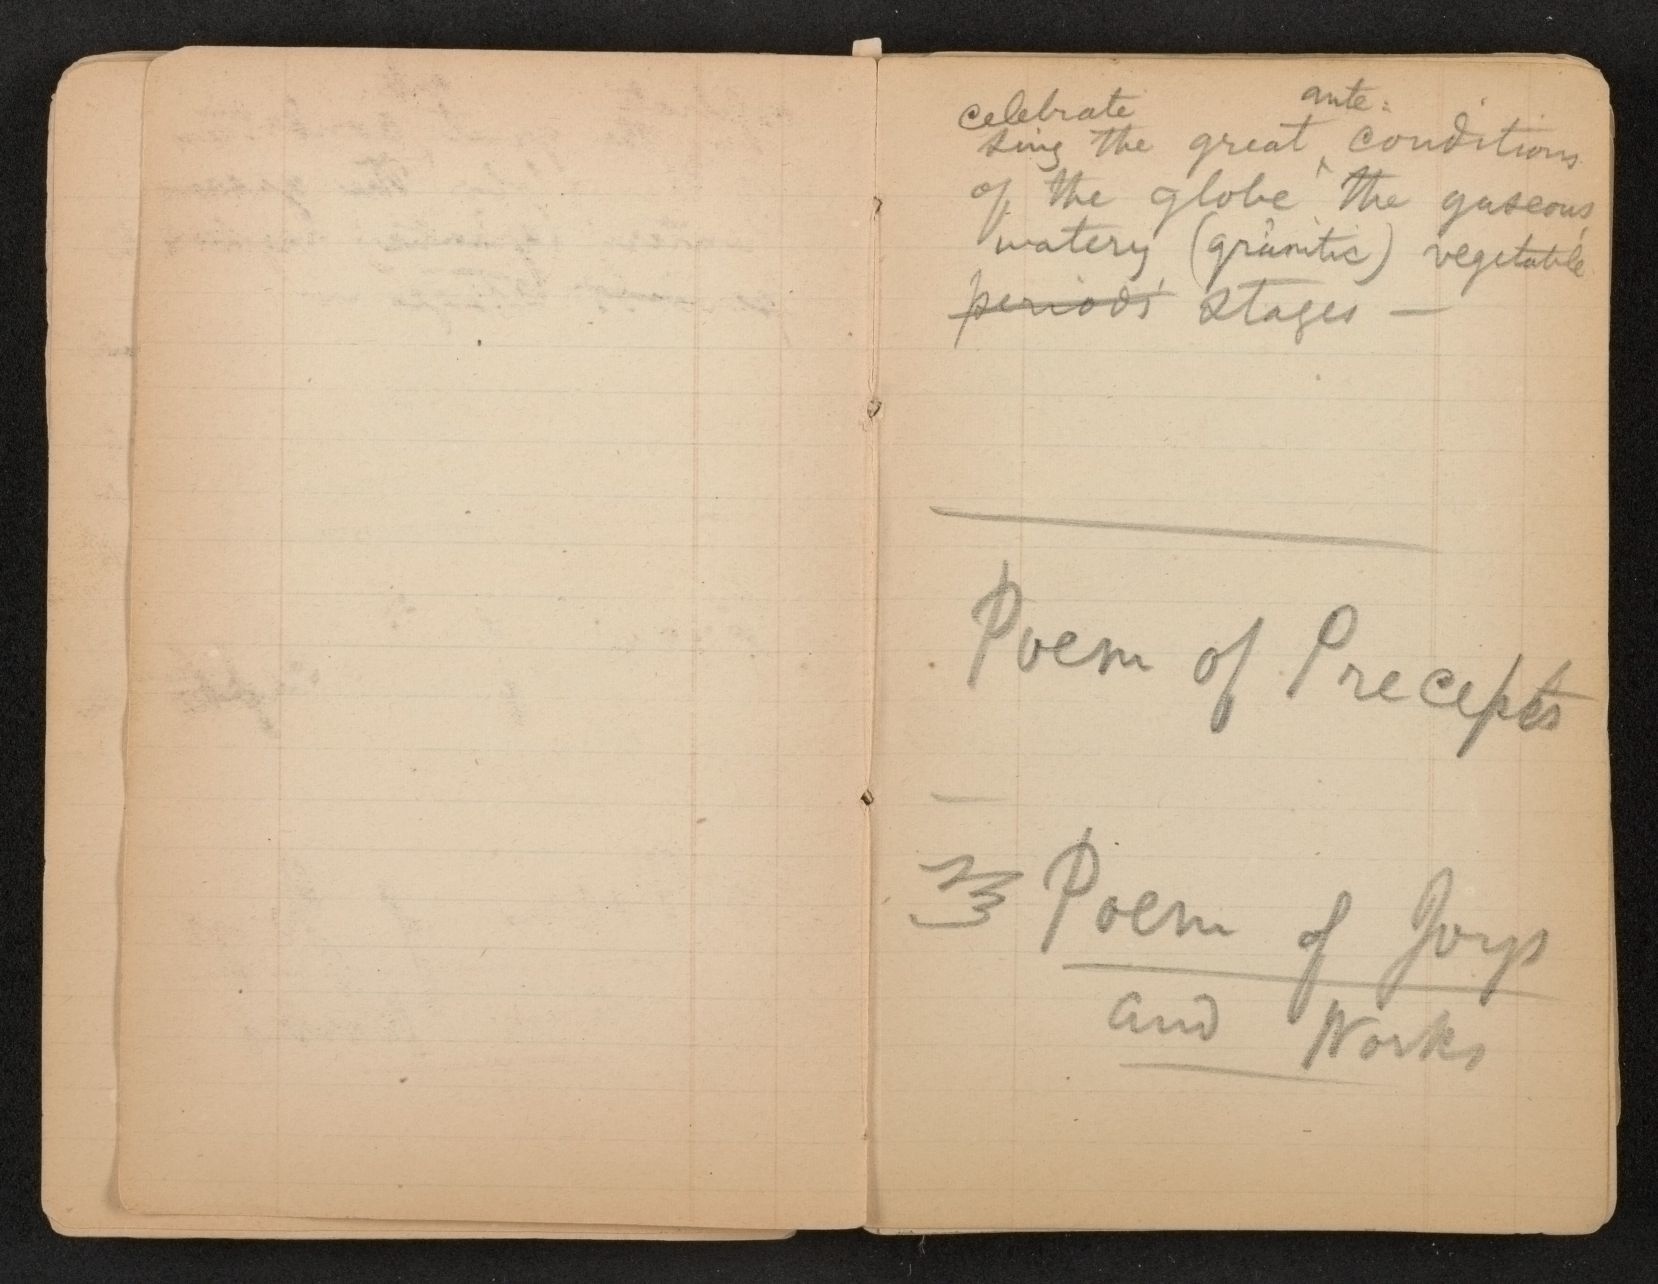 celebrate ante-
sing the great conditions
of the globe the gaseous,
watery (granitic) vegetable
periods stages —
Poem of Precepts
Poem of Joys
and Works